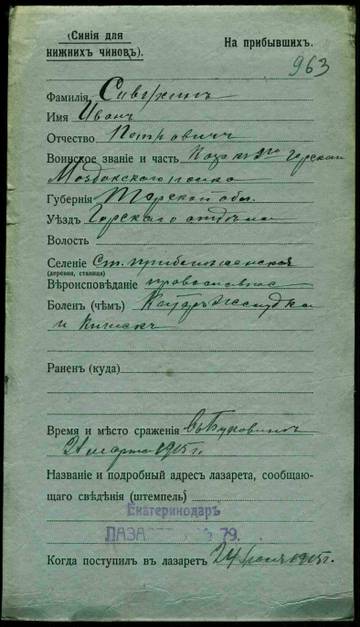 (Синія для
нижнихъ чиновъ).
На прибывшихъ.
963
Фамилія Сиверинъ
Имя Иванъ
Отчество Петровичъ
Воинское званіе и часть Казакъ
Моздокского полка
Губернія Терской обл.
Уѣздъ
Волость
Селеніе Ст.
(деревня, станица)
Вѣроисповѣданіе православное
Боленъ (чѣмъ) желудка
и кишекъ
Раненъ (куда)
Время и мѣсто сраженія Въ Буковинѣ
марта 1915 г.
Названіе и подробный адресъ лазарета, сообщаю-
щаго свѣдѣнія (штемпель)
Екатеринодар
ЛАЗАРЕТ 79.
Когда поступилъ въ лазаретъ 24 1915 г.